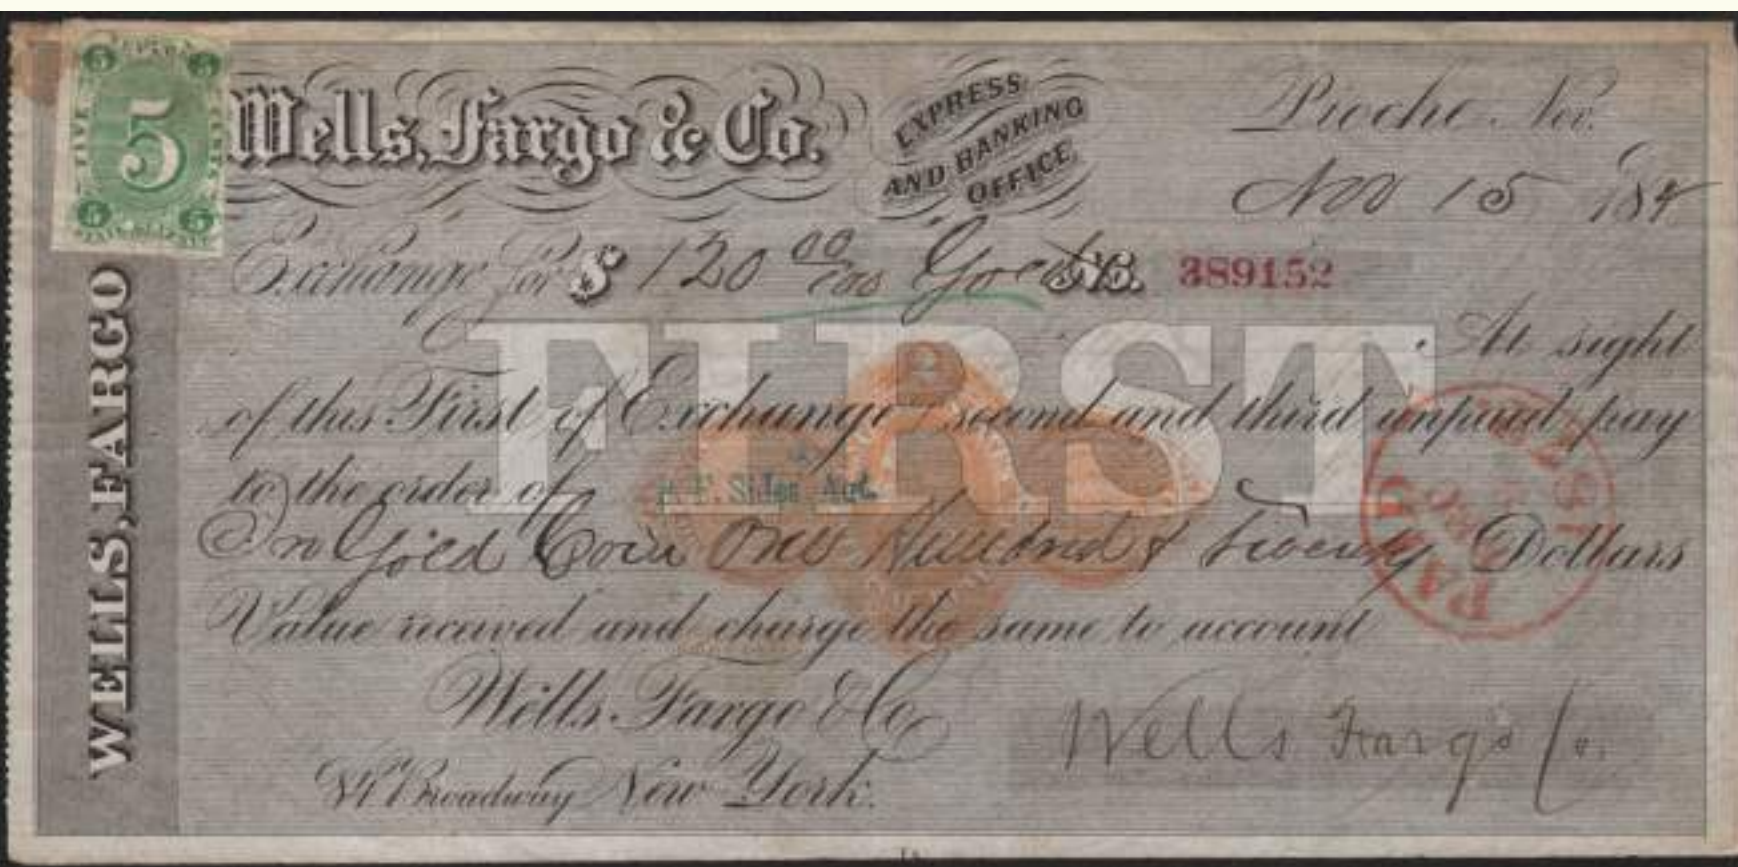 5
Wells, Fargo & Co.
EXPRESS
AND BANKING
OFFICE.
Pioche Nev.
Nov 15 187
Exchange for $ 120 00/100 Gold
No. 389152
FIRST
At sight
of this First of Exchange second and third unpaid pay
to the order of
In Gold Coin One Hundred & Twenty Dollars
Value received and charge the same to account
Wells Fargo & Co
Broadway New York.
Wells Fargo Co.
WELLS, FARGO
FIVE
CENTS
5
5
5
5
PAID